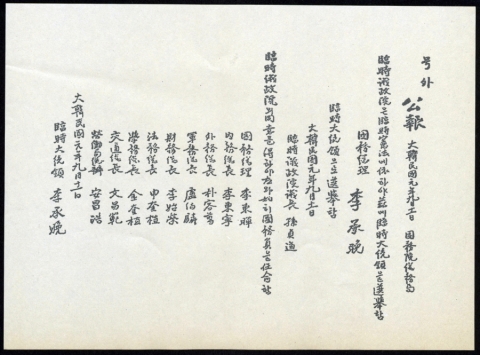 号外
公報 大韓民國元年九月十一日 國務院 
臨時議政院은臨時憲法에依하야玆에臨時大統領을選擧함
國務總理 李承晩
臨時大統領으로選擧함
大韓民國元年九月十一日
臨時議政院議長 孫貞道
臨時議政院의同意를得하야左와如히國務員을任命함
國務總理 李東輝
內務總長 李東寧
外務總長 朴容萬
軍務總長 盧伯麟
財務總長 李始榮
法務總長 申奎植
學務總長 金奎植
交通總長 文昌範
勞働局總辦 安昌浩
大韓民國元年九月十一日
臨時大統領 李承晩